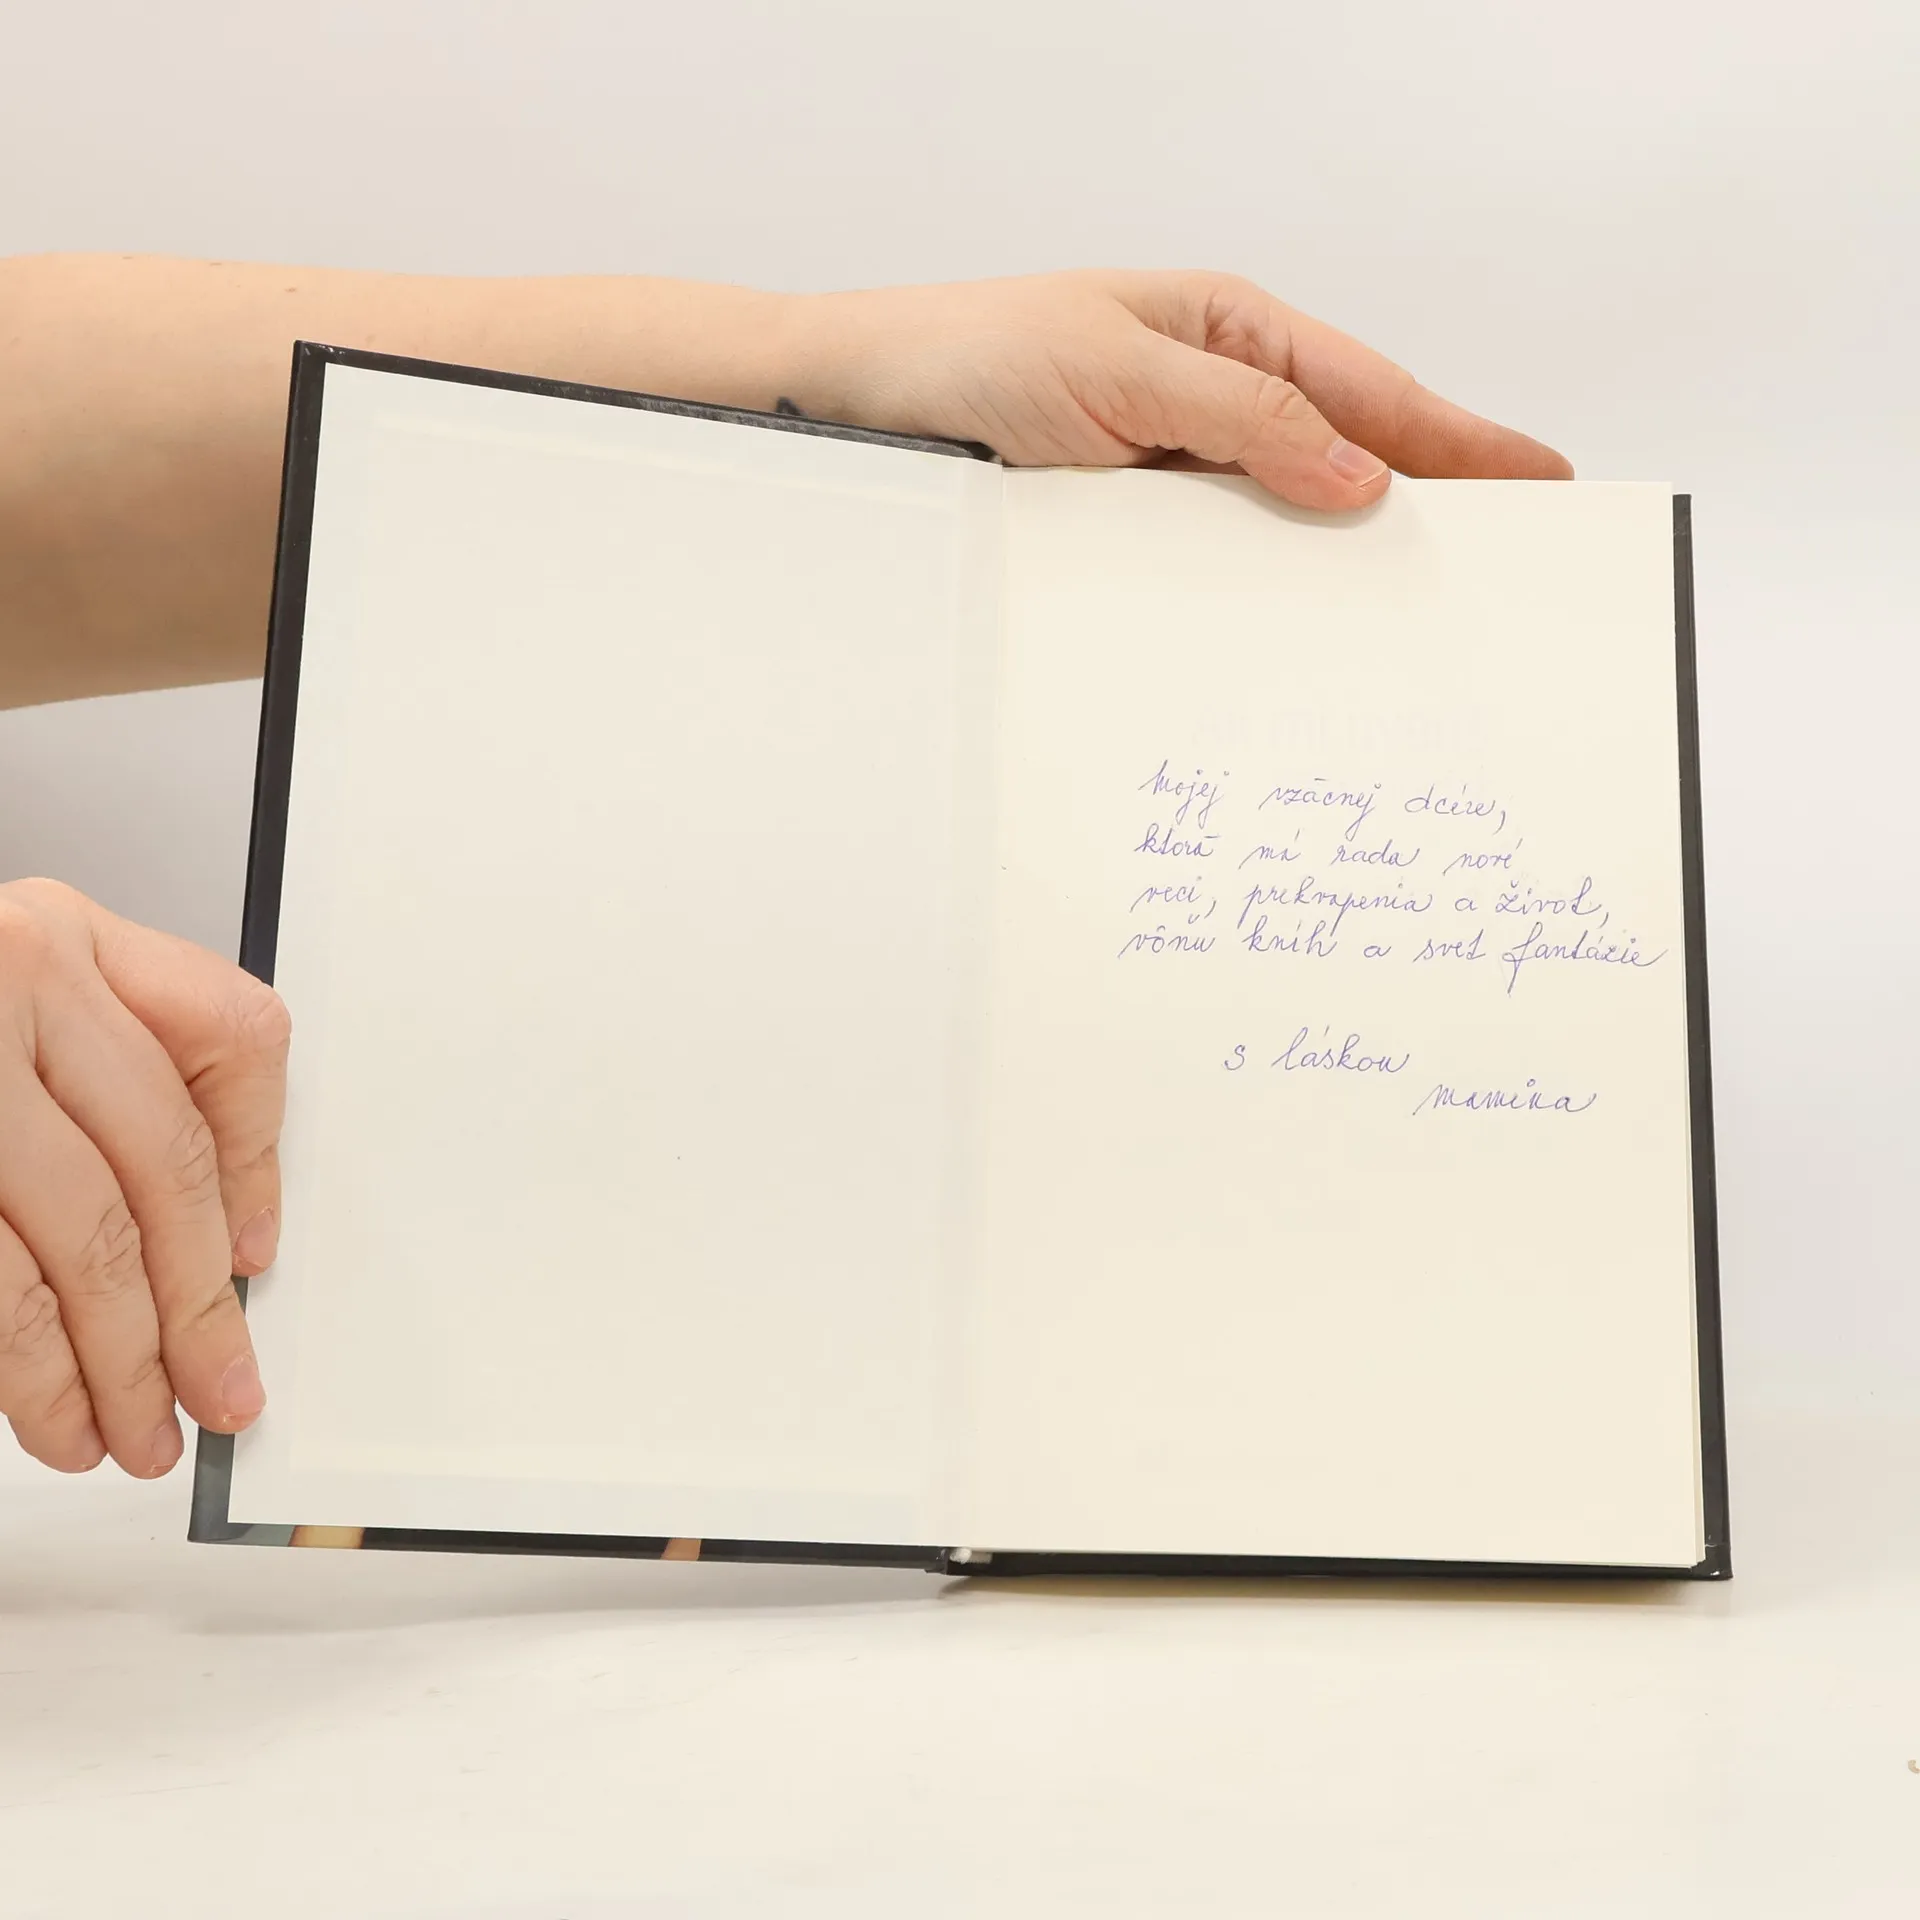 Mojej vzácnej dcére,
ktorá má rada nové
veci, prekvapenia a život,
vôňu kníh a svet fantázie
s láskou
mamina